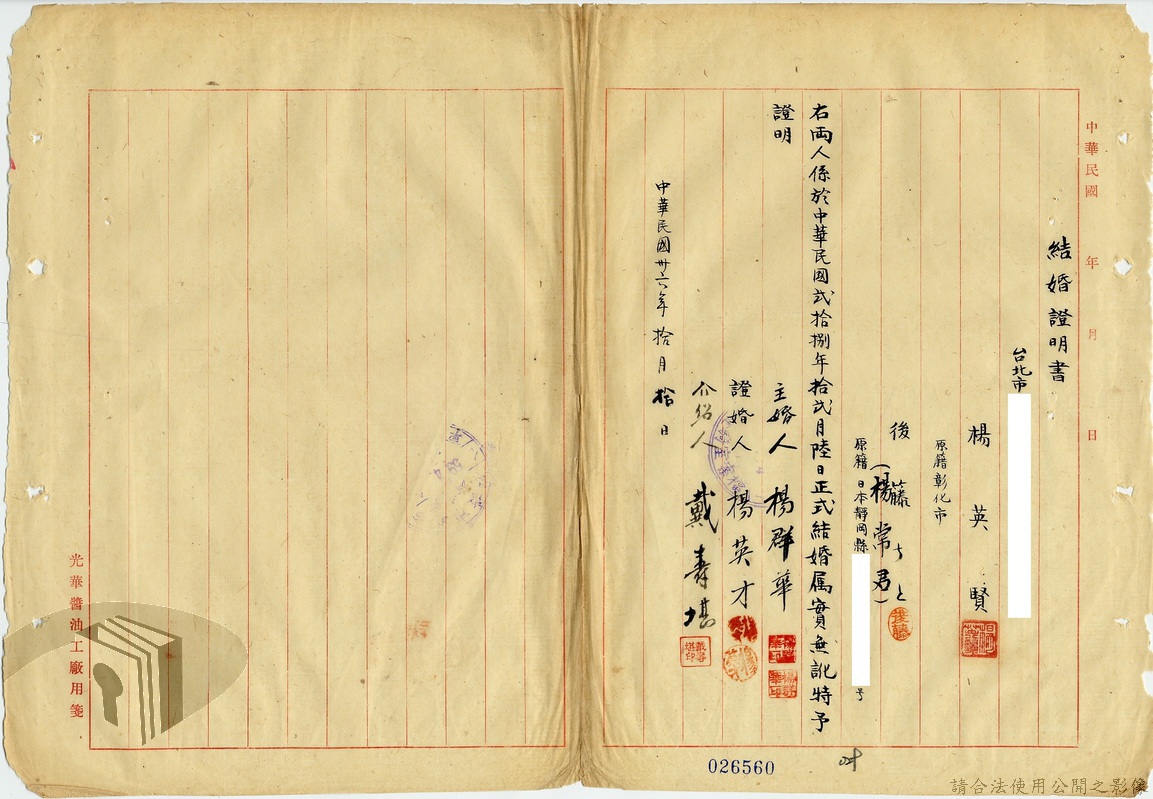 中華民國 年 月 日
結婚證明書
台北市
楊英賢
原籍彰化市
後藤ちと
(楊常君)
原籍日本靜岡縣 号
右両人係於中華民國弍拾捌年拾弍月陸日正式結婚属實無訛特予
證明
主婚人 楊群華
證婚人 楊英才
介紹人 戴壽堪
中華民國卅六年拾月拾日
光華醬油工廠用箋
後藤
戴壽堪印
026560
請合法使用公開之影像